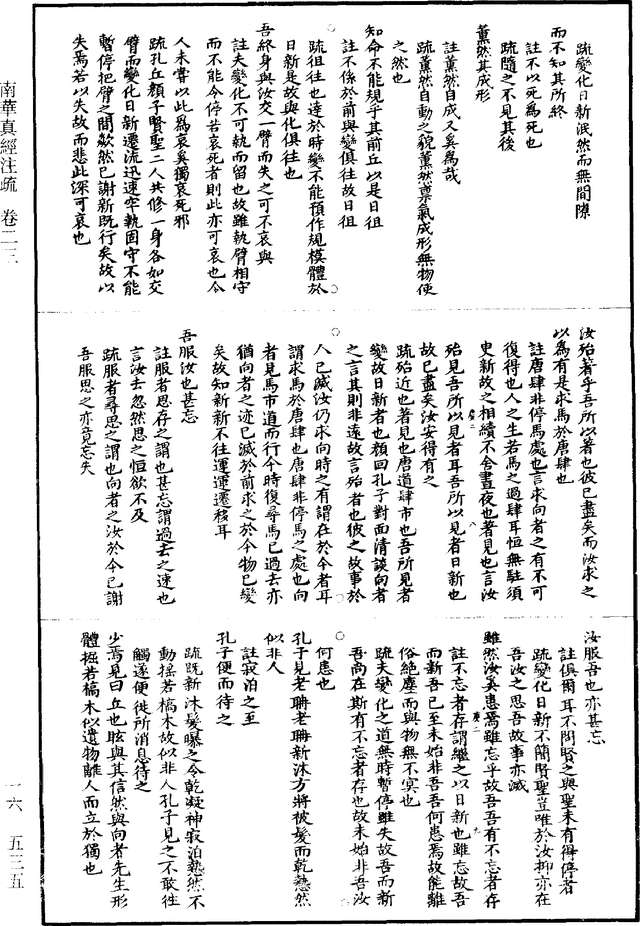 南華真經注疏　卷二三
一六　五三五
疏變化日新泯然而無間隙
而不知其所終
註不以死為死也
疏隨之不見其後
薰然其成形
註薰然自成又奚為哉
疏薰然自動之貌薰然稟氣成形無物使
之然也
知命不能規乎其前丘以是日徂
註不係於前與變俱往故日徂
疏徂往也達於時變不能預作規模體於
日新是故與化俱往也
吾終身與汝交一臂而失之可不哀與
註夫變化不可執而留也故雖執臂相守
而不能令停若哀死者則此亦可哀也今
人未嘗以此為哀奚獨哀死邪
疏孔丘顏子賢聖二人共修一身各如交
臂而變化日新遷流迅速牢執固守不能
暫停把臂之間欻然已謝新既行矣故以
失焉若以失故而悲此深可哀也
汝殆著乎吾所以著也彼已盡矣而汝求之
以為有是求馬於唐肆也
註唐肆非停馬處也言求向者之有不可
復得也人之生若馬之過肆耳恒無駐須
臾新故之相續不舍晝夜也著見也言汝
殆見吾所以見者耳吾所以見者日新也
故已盡矣汝安得有之
疏殆近也著見也唐道肆市也吾所見者
變故日新者也顏回孔子對面清談向者
之言其則非遠故言殆著也彼之故事於
今已滅汝仍求向時之有謂在於今者耳
謂求馬於唐肆也唐肆非停馬之處也向
者見馬市道而行今時復尋馬已過去亦
猶向者之迹已滅於前求之於今物已變
矣故知新新不往運運遷移耳
吾服汝也甚忘
註服者思存之謂也甚忘謂過去之速也
言汝去忽然思之恒欲不及
疏服者尋思之謂也向者之汝於今已謝
吾服思之亦竟忘失
汝服吾也亦甚忘
註俱爾耳不問賢之與聖未有得停者
疏變化日新不簡賢聖豈唯於汝抑亦在
吾汝之思吾故事亦滅
雖然汝奚患焉雖忘乎故吾吾有不忘者存
註不忘者存謂繼之以日新也雖忘故吾
而新吾已至未始非吾吾何患焉故能離
俗絕塵而與物無不冥也
疏夫變化之道無時暫停雖失故吾而新
吾尚在斯有不忘者存也故未始非吾汝
何患也
孔子見老聃老聃新沐方將被髮而乾慹然
似非人
註寂泊之至
孔子便而待之
疏既新沐髮曝之令乾凝神寂泊慹然不
動搖若槁木故似非人孔子見之不敢往
觸遂便徙所消息待之
少焉見曰丘也眩與其信然與向者先生形
體掘若槁木似遺物離人而立於獨也